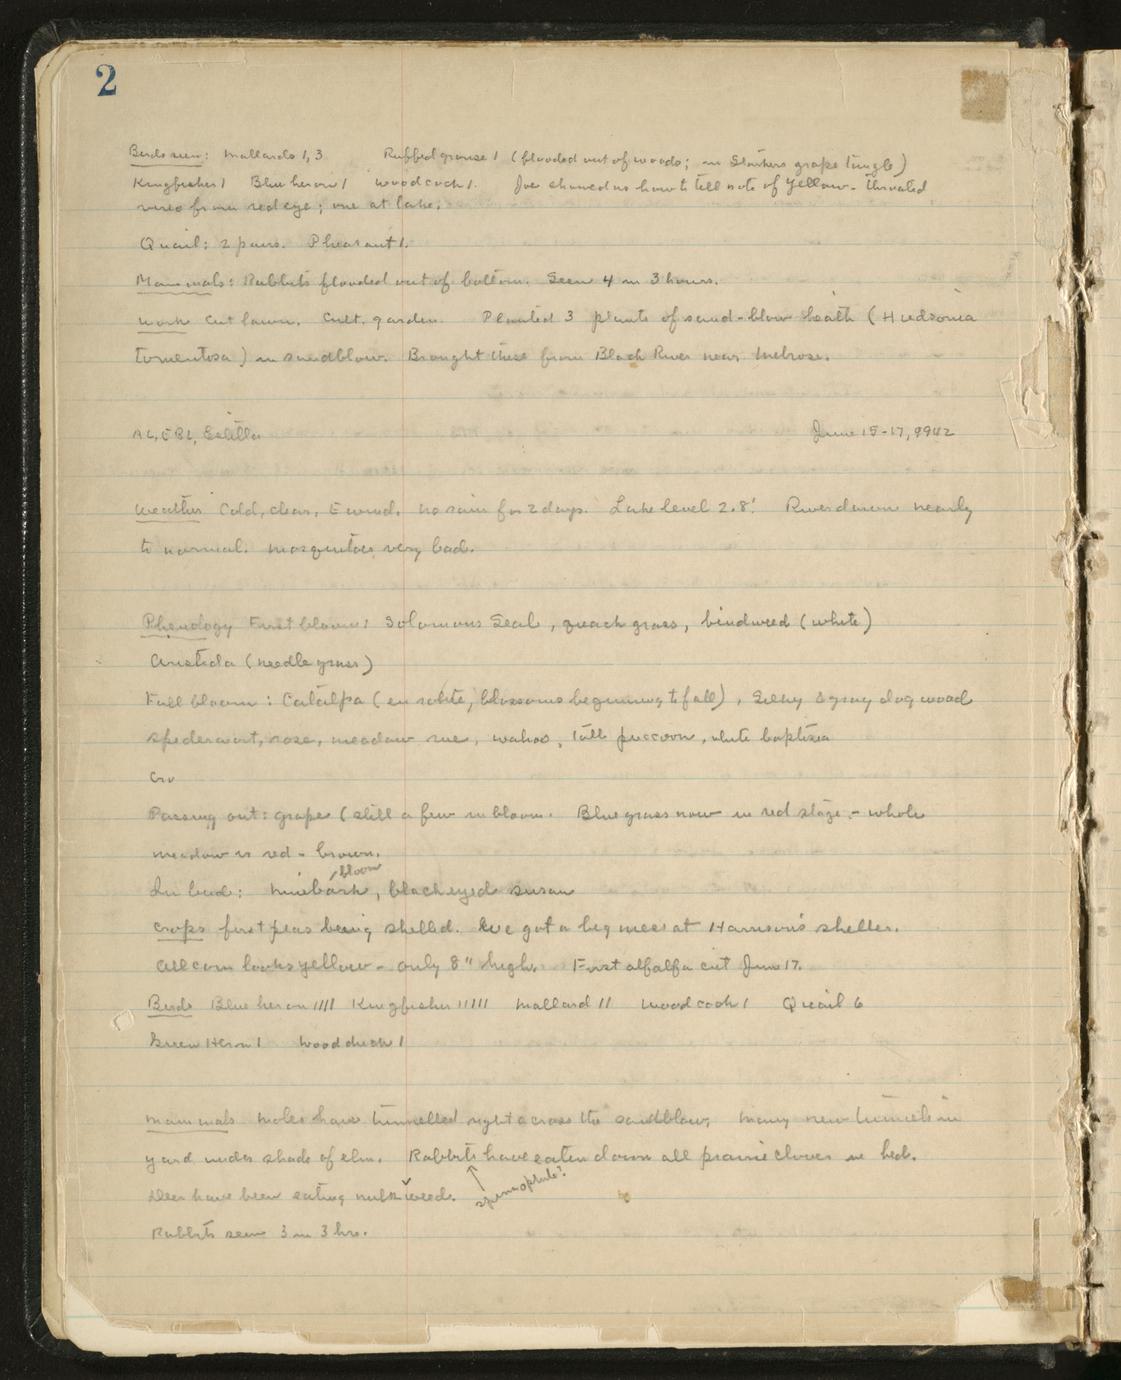 2
Birds seen: Mallards 1, 3 Ruffed grouse 1 (flooded out of woods; in grape tangle)
Kingfisher 1 Blue heron 1 Woodcock 1. Joe showed us how to tell note of Yellow-throated
vireo from red eye; one at lake.
Quail: 2 pairs. Pheasant 1.
Mammals: Rabbits flooded out of bottom. Seen 4 in 3 hours.
Work Cut lawn. Cult. garden. Planted 3 plants of sand-blow heath (Hudsonia
tomentosa) in sandblow. Brought these from Black River near Melrose.
AL, EBL, Estella June 15-17, 1942
Weather Cold, clear, E wind. No rain for 2 days. Lake level 2.8'. River down nearly
to normal. Mosquitoes very bad.
Phenology First bloom: Solomons Seal, quack grass, bindweed (white)
Aristida (needle grass)
Full bloom: Catalpa (en route, blossoms beginning to fall), Silky & gray dogwood
spiderwort, rose, meadow rue, wahoo, tall puccoon, white baptisia
Cro
Passing out: grape (still a few in bloom. Bluegrass now in red stage - whole
meadow is red-brown.
, bloom
In bud: Ninebark, blackeyed susan
Crops first peas being shelled. We got a big mess at Harrison's sheller.
All corn looks yellow - only 8" high. First alfalfa cut June 17.
Birds Blue heron //// Kingfisher ///// Mallard // Woodcock / Quail 6
Green Heron 1 Woodduck 1
Mammals Moles have tunnelled right across the sandblow, many new tunnels in
yard under shade of elm. Rabbits have eaten down all prairie clover in bed.
Deer have been eating milkweed. spermophile?
Rabbits seen 3 in 3 hrs.